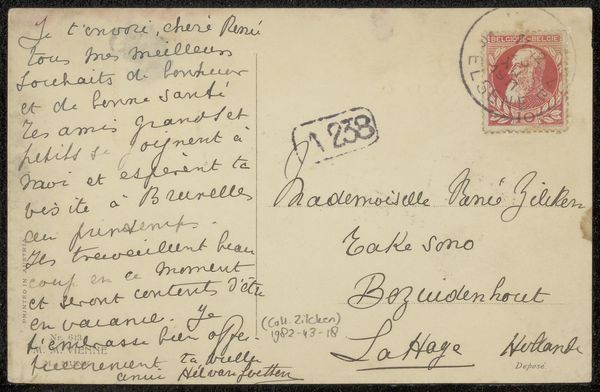 Je t'envoie, chère Renée
tous mes meilleurs
souhaits de bonheur
et de bonne santé
Les amis grands et
petits se joignent à
et espèrent ta
visite à Bruxelles
au printemps.
Ils travaillent beau
coup en ce moment
et seront contents d'être
en vacance. Je
t'embrasse bien affec-
tueusement ta vieille
amie
PRINTED IN AUSTRIA
Nr. 613
M. M. VIENNE
(Coll. Zilcken)
1982-43-18
1238
BELGIQUE-BELGIË
ELSENE
10
Mademoiselle Renée Zilcken
Take sono
Bezuidenhout
La Haye Hollande
Deposé.